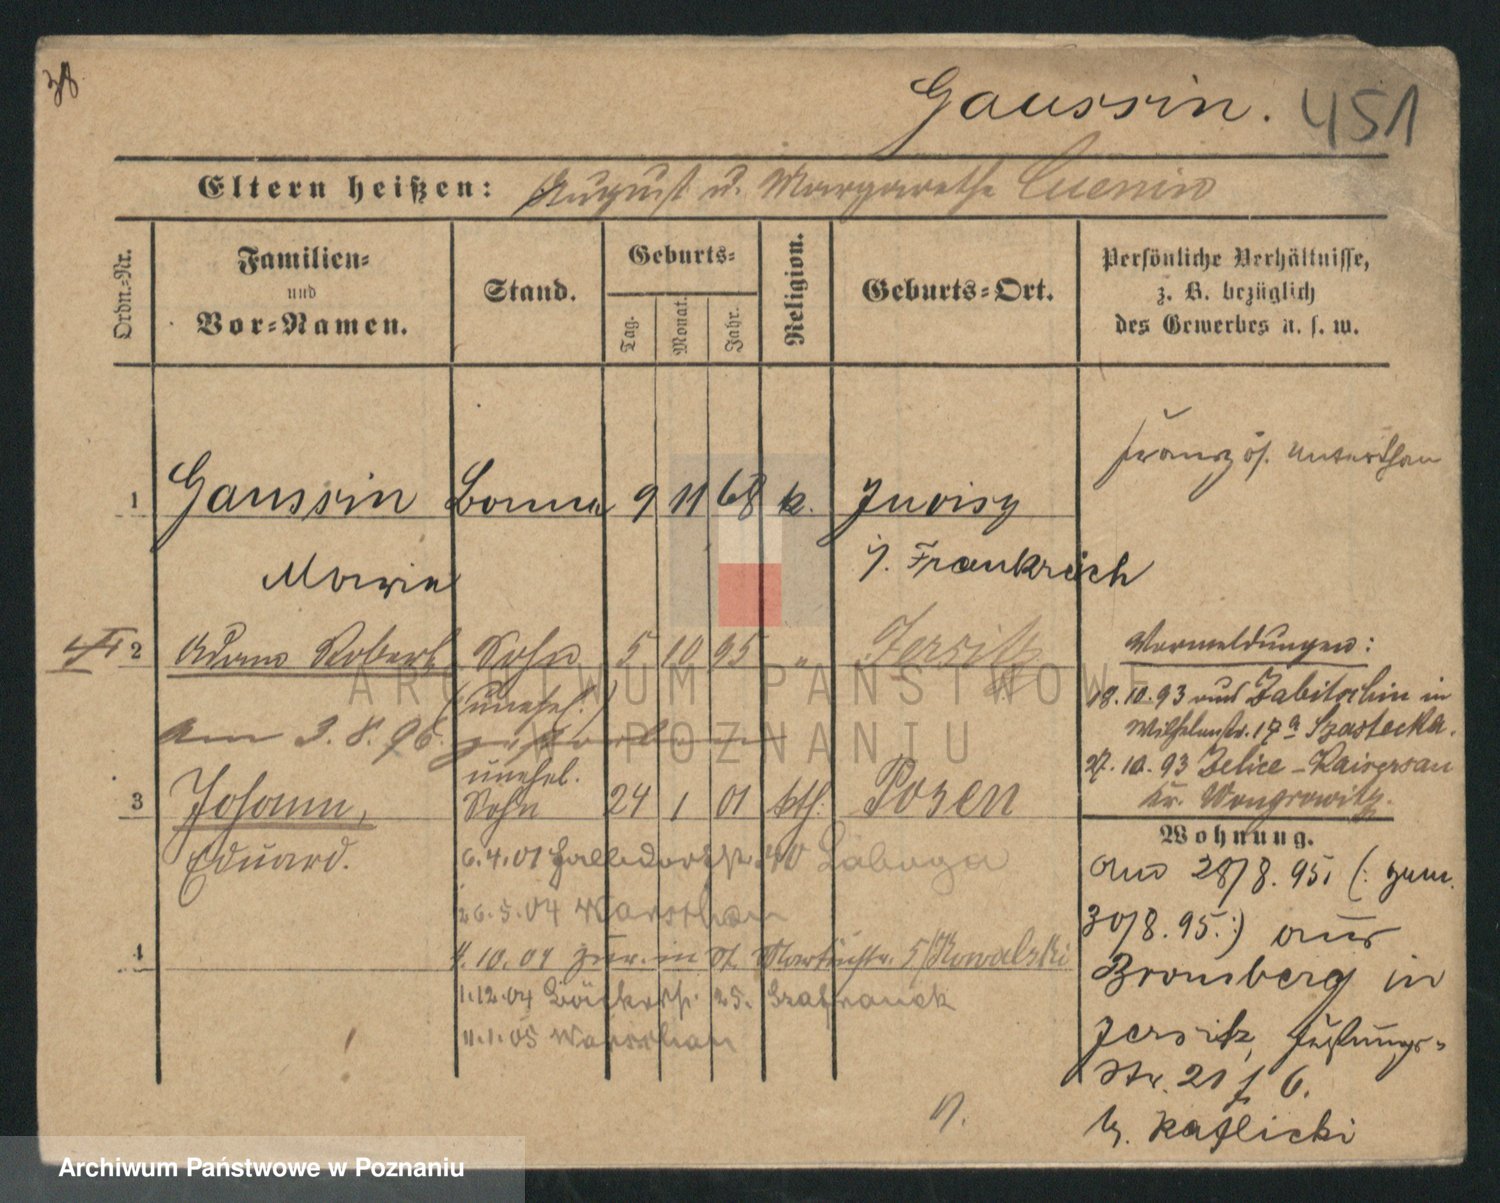 38
Gaussin. 451
Eltern heißen: August u. Margarethe Cuenin
Ordn.-Nr.
Familien-
und
Vor-Namen.
Stand.
Geburts-
Tag.
Monat.
Jahr.
Religion.
Geburts-Ort.
Persönliche Verhältnisse,
z. B. bezüglich
des Gewerbes u. s. w.
Französ. Unterthan
1 Gaussin Bonne 9 11 68 k. Juvisy
Marie i. Frankreich
2 Adam Robert Sohn 5 10 95 " Jersitz
(unehel.)
am 3.8.96. gestorben
unehel.
3 Johann, Sohn 24 1 01 kth. Posen
Eduard.
6.4.01 40 Labuga
26.5.04 Warschau
4
4.10.04 zur. in St. Martinstr. 5/Kowalski
1.12.04 Bäckerstr. 25. Szafranek
11.1.05 Warschau
Vormeldungen:
18.10.93 aus Zabitschin in
Wilhelmstr. 17a Szastecka.
27.10.93 Zelice-Kaisersau
Kr. Wongrowitz.
Wohnung.
Am 28/8.95. (: gem.
30/8.95.:) aus
Bromberg in
Jersitz,
Str. 21 f 6.
b. Katlicki
n.
ARCHIWUM PAŃSTWOWE
W POZNANIU
Archiwum Państwowe w Poznaniu